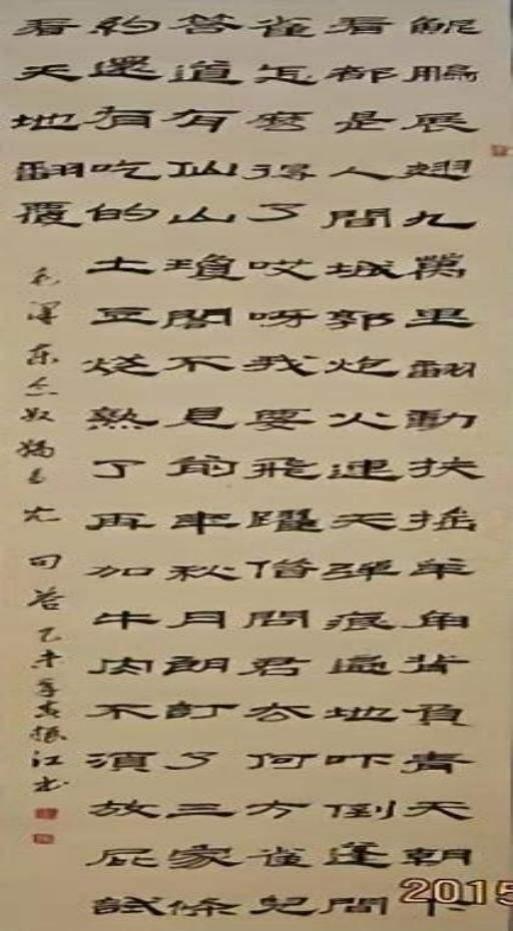 鯤鵬展翅九萬里翻動扶搖羊角背負青天朝下
看都是人間城郭炮火連天彈痕遍地吓倒蓬間
雀怎麼得了哎呀我要飛躍借問君去何方雀兒
答道有仙山瓊閣不見前年秋月朗訂了三家條
約還有吃的土豆燒熟了再加牛肉不須放屁試
看天地翻覆
毛澤東念奴嬌鳥兒問答乙未年春振江書
2015